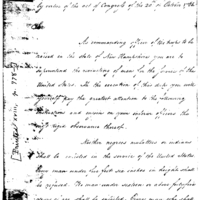 by virtue of the act of Congress of the 20th of October 1786
As commanding officer of the troops to be
raised in the state of New Hampshire you are to
superintend the recruiting of men for the service of the
United States. In the execution of this duty you will
yourself pay the greatest attention to the following
instructions and enjoin on your inferior officers the
most rigid observance thereof.
Neither negroes mulattoes or indians
shall be enlisted in the service of the United States
Every man under five feet six inches in height shall
be rejected. No man under sixteen or above forty five
years of age shall be enlisted. Every man who shall
[Printed XXXI, p.